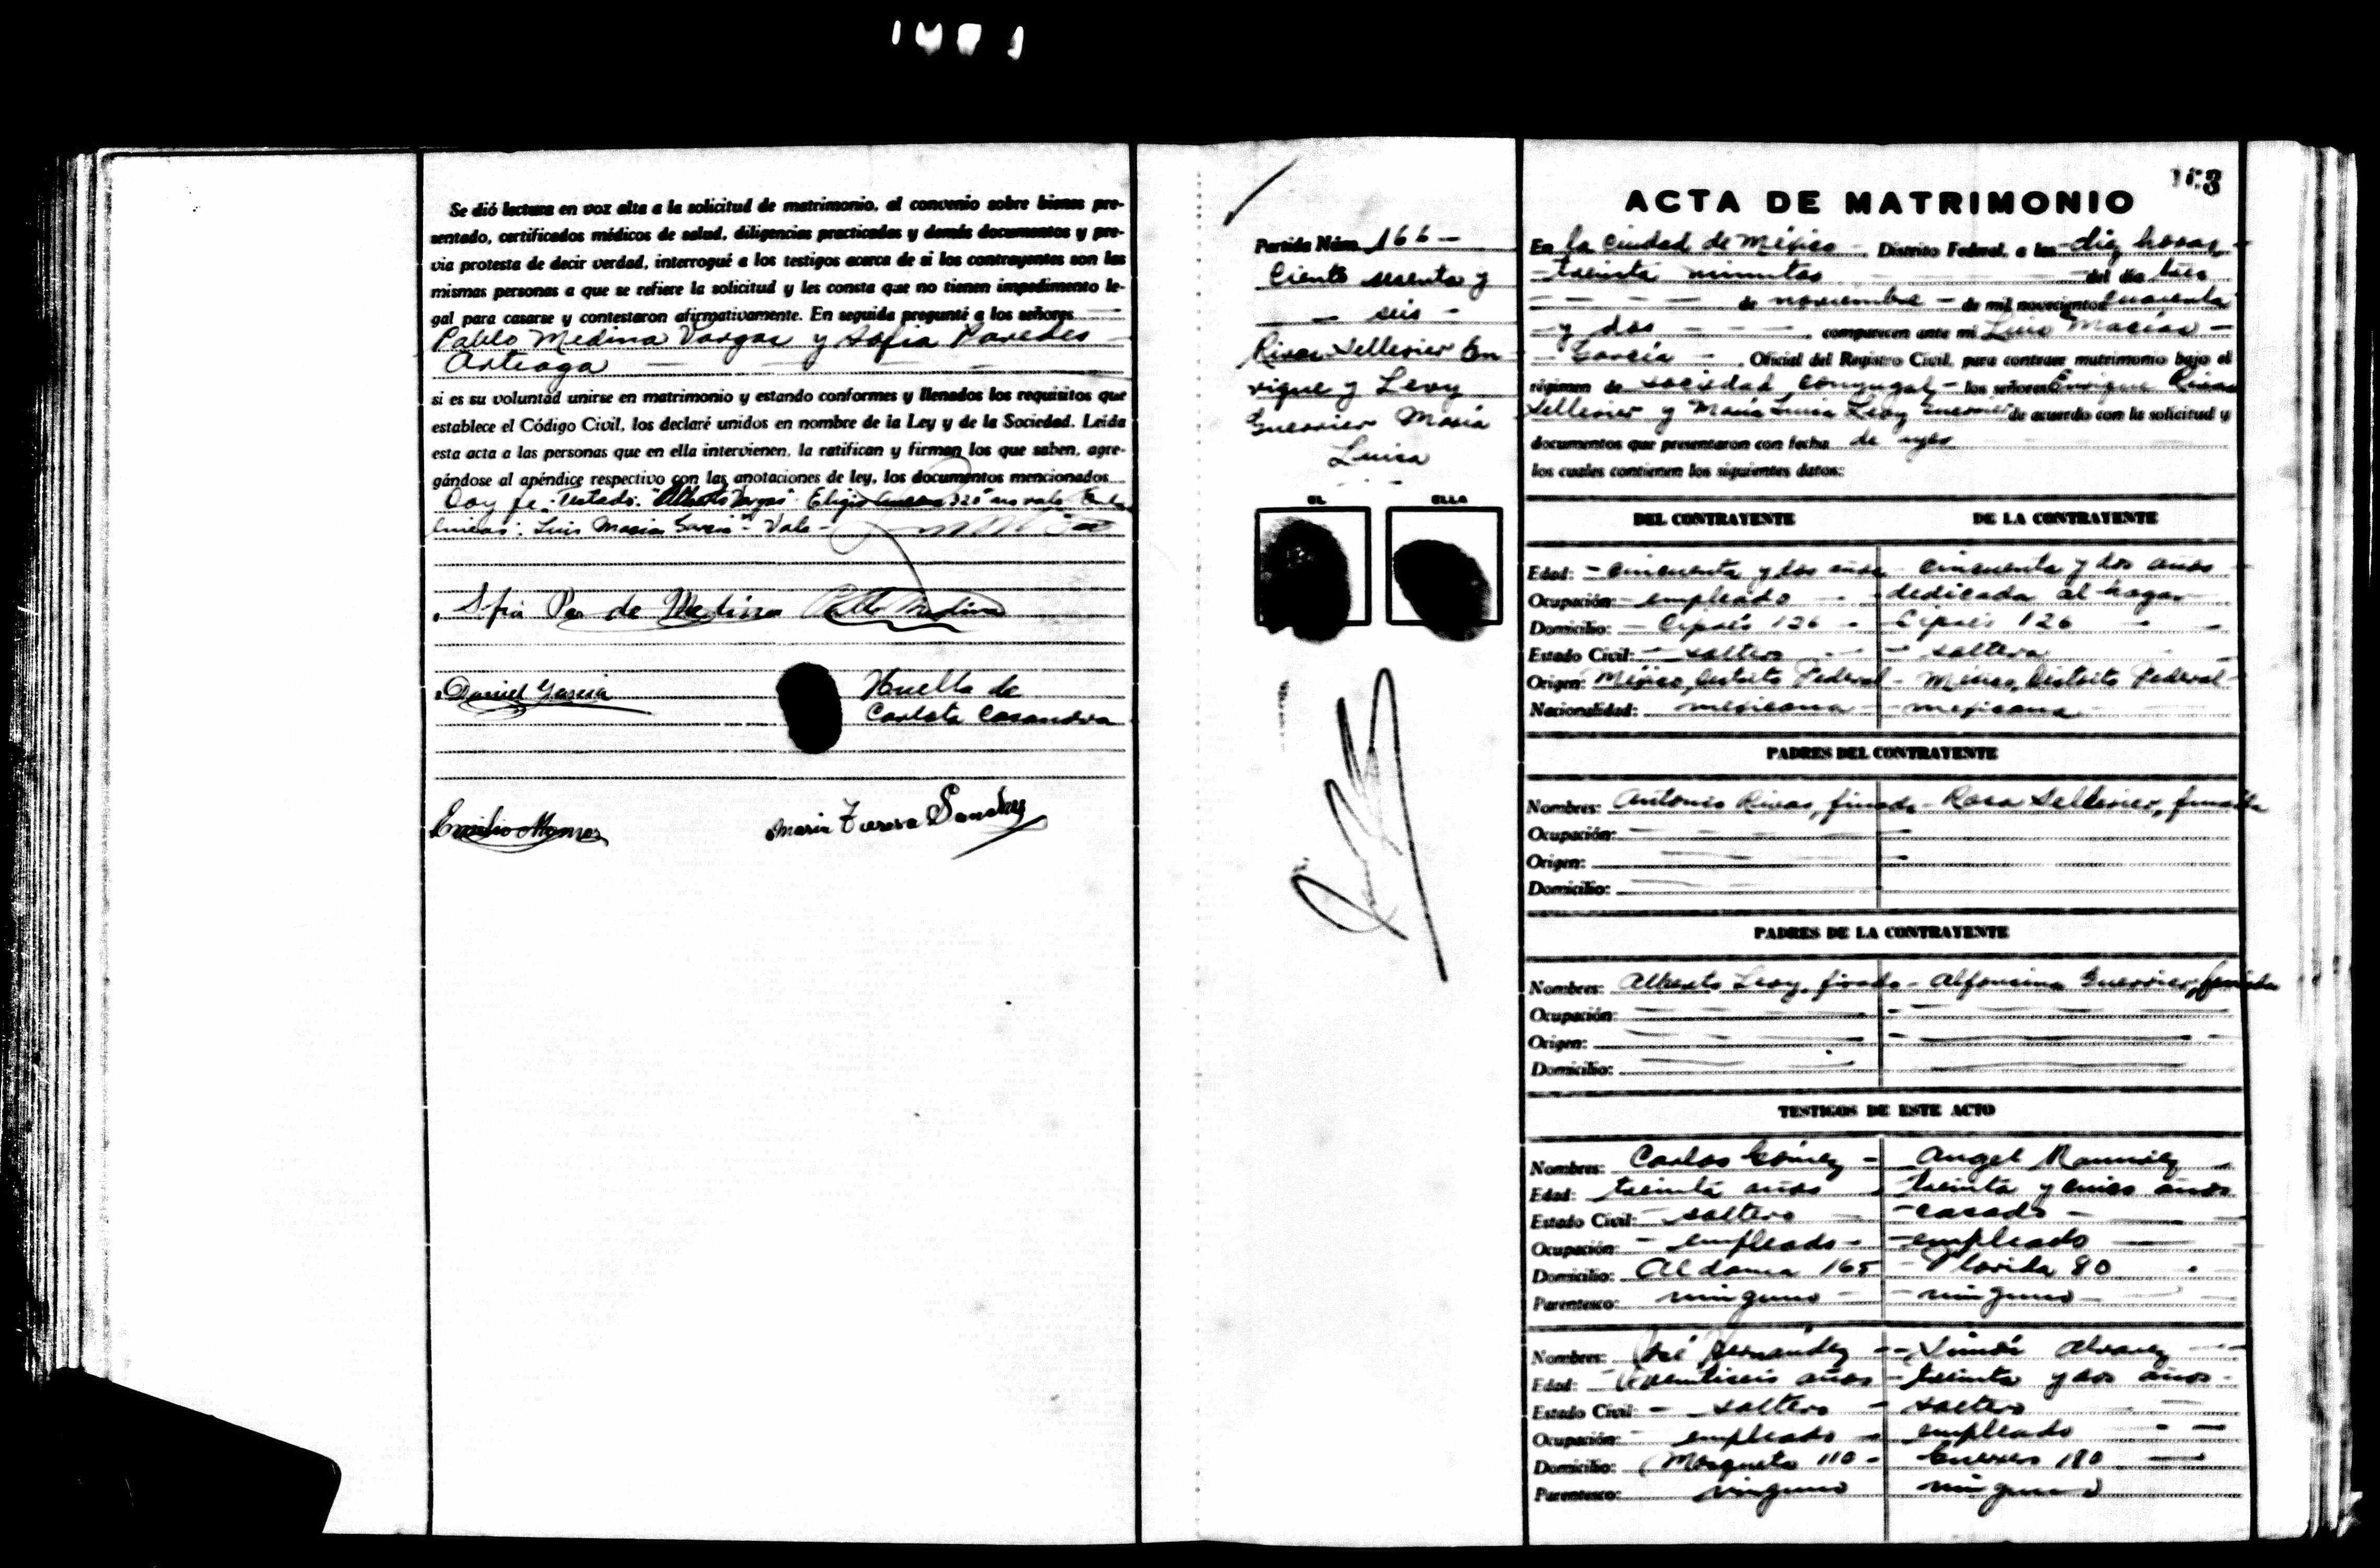 Se dió lectura en voz alta a la solicitud de matrimonio, al convenio sobre bienes pre-
sentado, certificados médicos de salud, diligencias practicadas y demás documentos y pre-
via protesta de decir verdad, interrogué a los testigos acerca de si los contrayentes son las
mismas personas a que se refiere la solicitud y les consta que no tienen impedimento le-
gal para casarse y contestaron afirmativamente. En seguida pregunté a los señores
Pablo Medina Vargas y Sofia Paredes
Arteaga
si es su voluntad unirse en matrimonio y estando conformes y llenados los requisitos que
establece el Código Civil, los declaré unidos en nombre de la Ley y de la Sociedad. Leída
esta acta a las personas que en ella intervienen, la ratifican y firman los que saben, agre-
gándose al apéndice respectivo con las anotaciones de ley, los documentos mencionados.
Doy fe. Testado: "Alberto Vargas" no vale. Entre
lineas: Luis Macias Garcia - Vale -
de Medina Pablo Medina
Daniel Garcia
Huella de
Carlota Casandra
Maria Teresa Sanchez
Partida Núm. 166 -
Ciento sesenta y
- seis -
Rivas Sellerier En-
rique y Levy
Guerrier Maria
Luisa
EL
ELLA
ACTA DE MATRIMONIO
En la Ciudad de México - Distrito Federal, a las diez horas
treinta minutos del día tres
de noviembre - de mil novecientos cuarenta
y dos comparecen ante mí Luis Macias
García, Oficial del Registro Civil, para contraer matrimonio bajo el
régimen de sociedad conyugal - los señores Enrique Rivas
Sellerier y María Luisa Levy Guerrier de acuerdo con la solicitud y
documentos que presentaron con fecha de ayer
los cuales contienen los siguientes datos:
DEL CONTRAYENTE DE LA CONTRAYENTE
Edad: - cincuenta y dos años - cincuenta y dos años
Ocupación: empleado - dedicada al hogar
Domicilio: - Ciprés 126 - Ciprés 126
Estado Civil: - soltero - soltera
Origen: México, Distrito Federal - México, Distrito Federal
Nacionalidad: mexicana - mexicana
PADRES DEL CONTRAYENTE
Nombres: Antonio Rivas, finado - Rosa Sellerier, finada
Ocupación:
Origen:
Domicilio:
PADRES DE LA CONTRAYENTE
Nombres: Alberto Levy, finado - Alfonsina Guerrier, finada
Ocupación:
Origen:
Domicilio:
TESTIGOS DE ESTE ACTO
Nombres: Carlos Gómez - Angel Ramirez
Edad: treinta años treinta y cinco años
Estado Civil: - soltero - casado -
Ocupación: - empleado - empleado
Domicilio: Aldama 165 - Florida 80
Parentesco: ninguno - ninguno
Nombres: José Hernández - Simón Alvarez
Edad: Veintiseis años - treinta y dos años
Estado Civil: - soltero - soltero
Ocupación: - empleado - empleado
Domicilio: Mosqueta 110 - Guerrero 180
Parentesco: ninguno ninguno